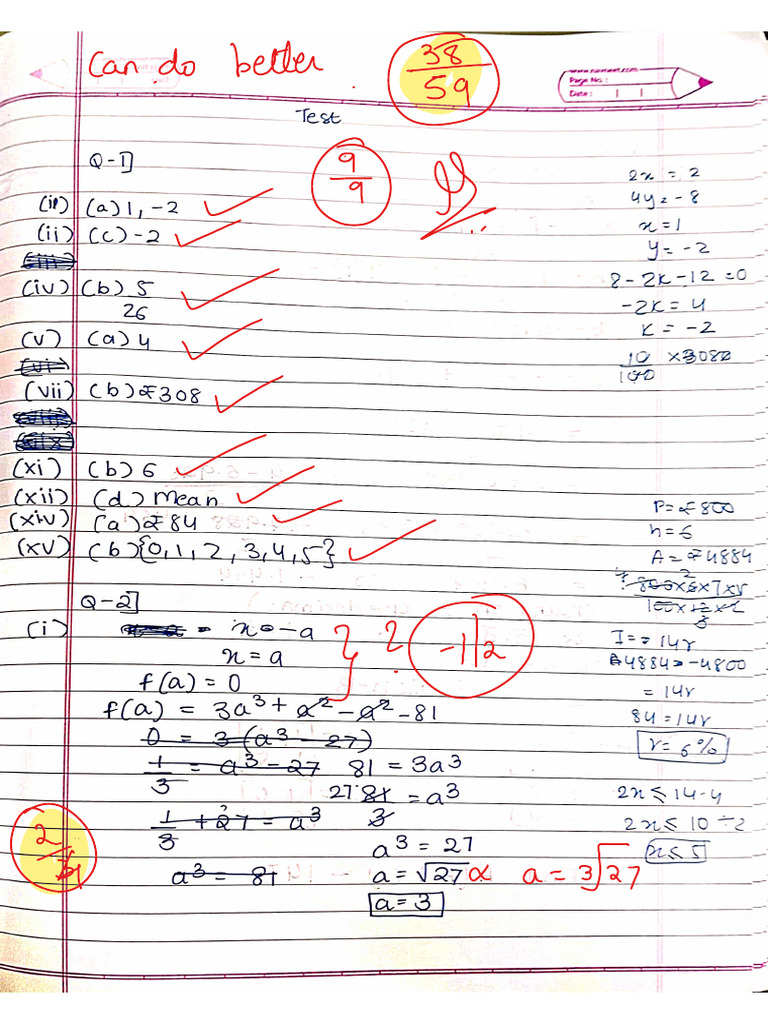 Can do better
38
59
www.navneet.com
Page No. :
Date :
Test
Q-1]
9
9
(i) (a) 1, -2
(ii) (c) -2
(iii)
(iv) (b) 5
26
(v) (a) 4
(vi)
(vii) (b) ₹308
(xi) (b) 6
(xii) (d) Mean
(xiv) (a) ₹84
(xv) (b) {0, 1, 2, 3, 4, 5}
2x = 2
4y = -8
x = 1
y = -2
8 - 2k - 12 = 0
-2k = 4
k = -2
10 × 3080
100
P = ₹800
n = 6
A = ₹4884
100×12×2
I = 14r
4884 - 4800
= 14r
84 = 14r
r = 6%
2x ≤ 14-4
2x ≤ 10 ÷ 2
x ≤ 5
Q-2]
(i) x = -a
x = a
} ? -1/2
f(a) = 0
f(a) = 3a³ + a² - a² - 81
0 = 3(a³ - 27)
1/3 = a³ - 27 81 = 3a³
27 81 = a³
3
1/3 + 27 = a³
a³ = 27
a³ = 81 a = √27 a = 3√27
a = 3
2